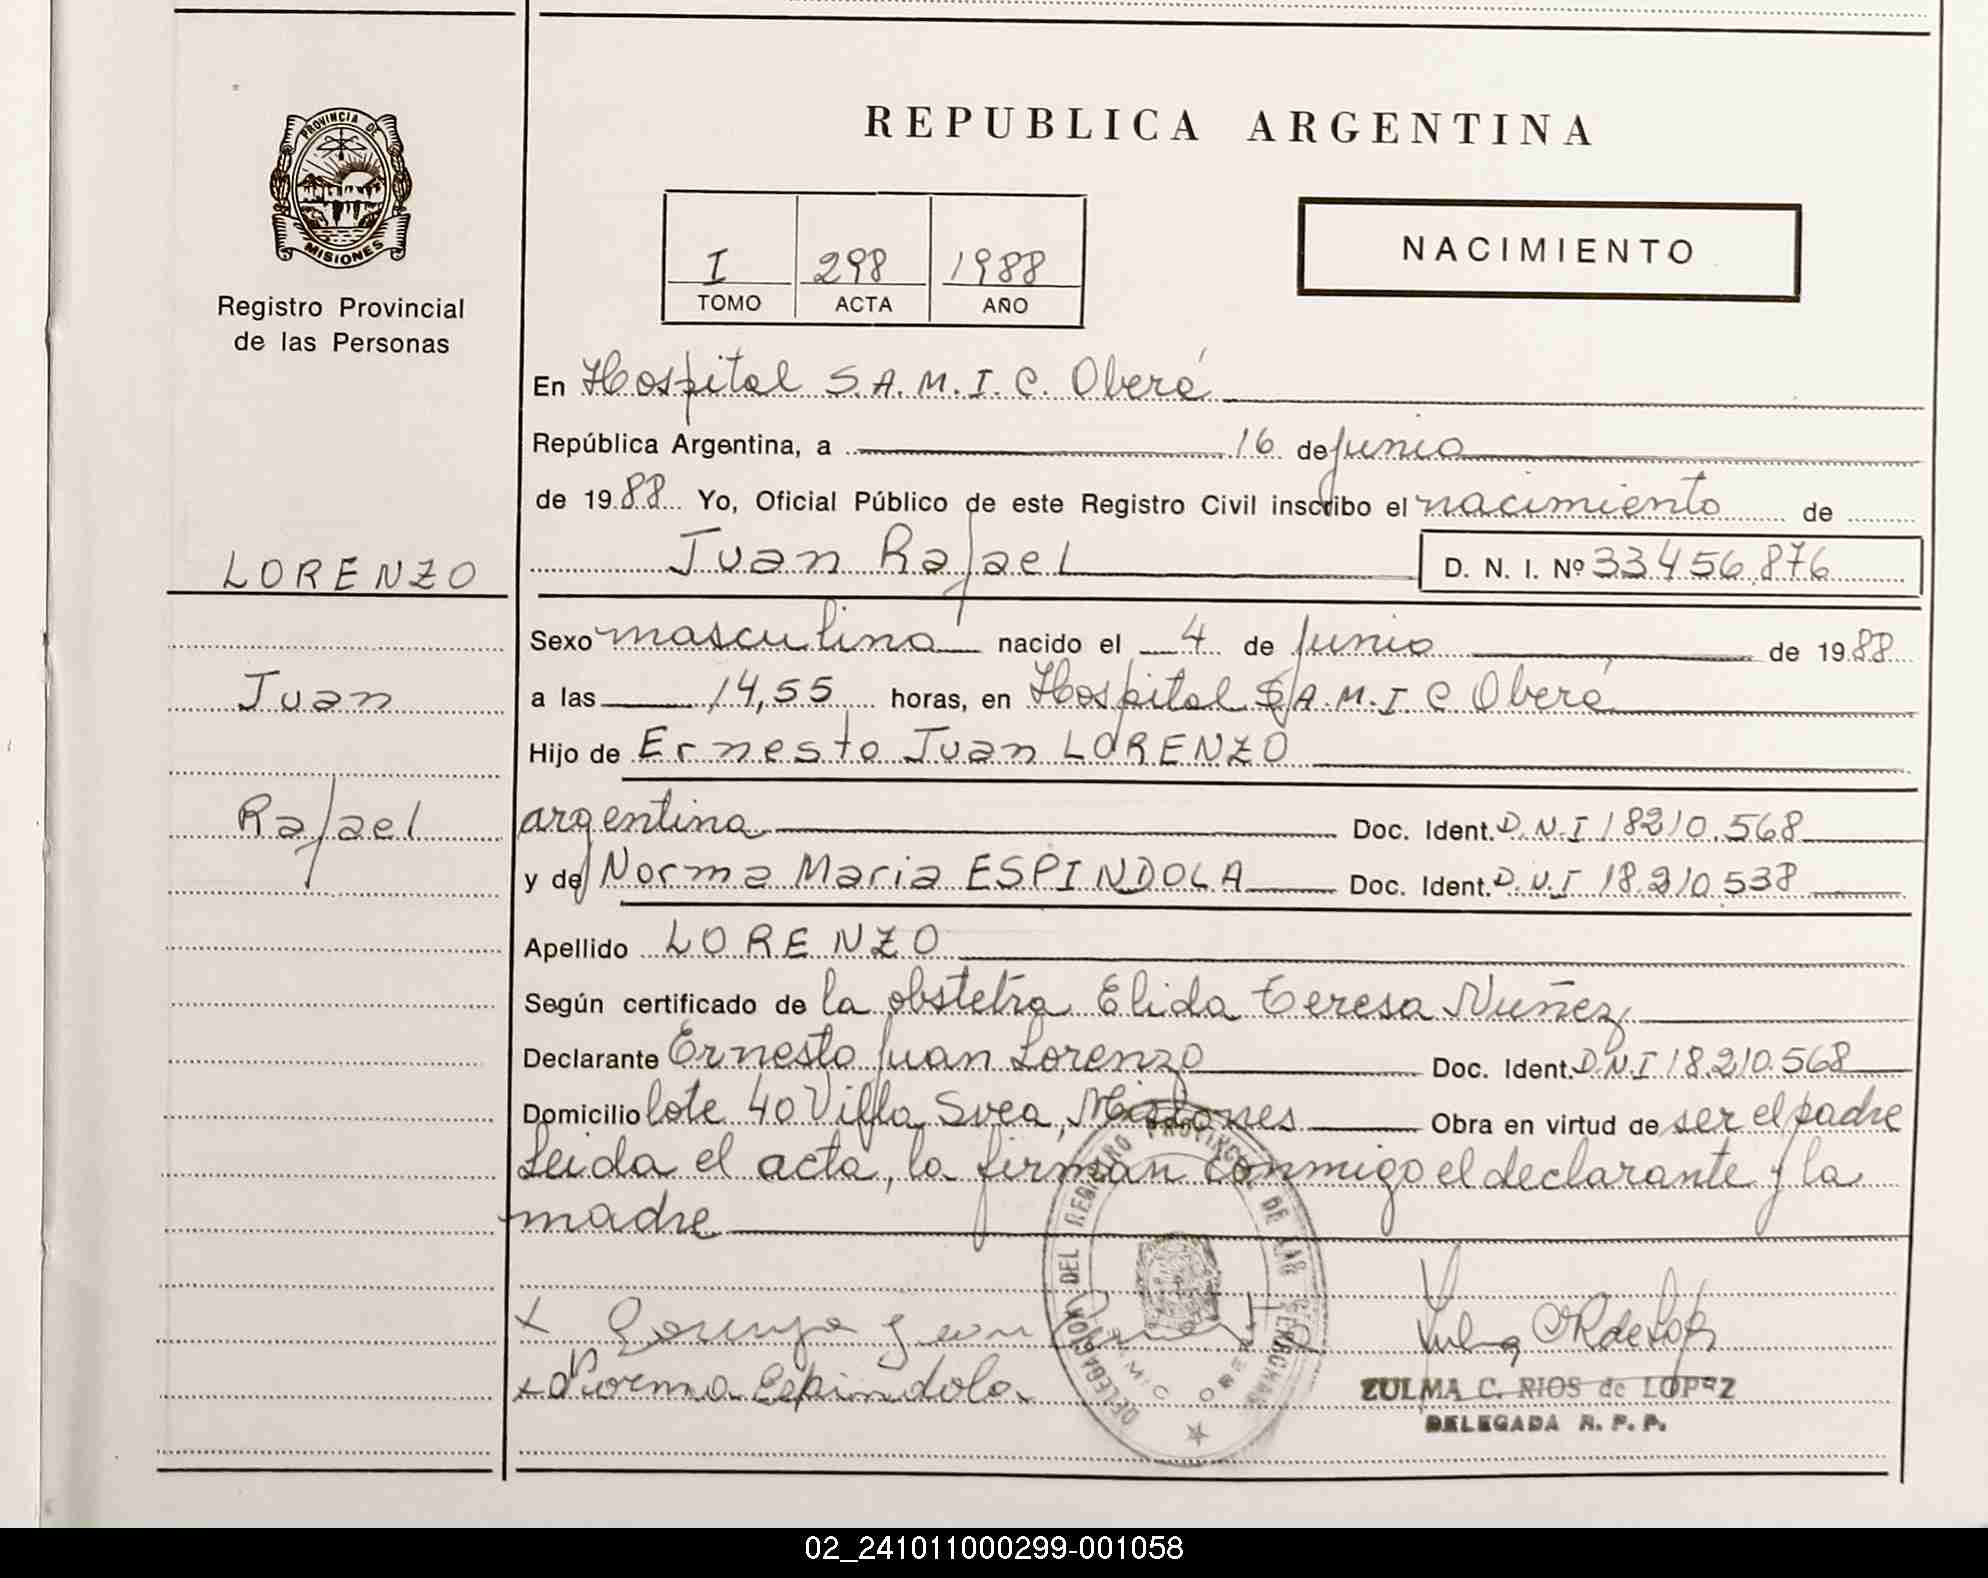 PROVINCIA DE
MISIONES
Registro Provincial
de las Personas
LORENZO
Juan
Rafael
REPUBLICA ARGENTINA
I 298 1988
TOMO ACTA AÑO
NACIMIENTO
En Hospital S.A.M.I.C. Oberá
República Argentina, a 16 de junio
de 1988 Yo, Oficial Público de este Registro Civil inscribo el nacimiento de
Juan Rafael D. N. I. Nº 33456.876
Sexo masculino nacido el 4 de junio de 1988
a las 14,55 horas, en Hospital S.A.M.I.C Oberá
Hijo de Ernesto Juan LORENZO
argentina Doc. Ident. D.N.I 18210.568
y de Norma Maria ESPINDOLA Doc. Ident. D.N.I 18.210.538
Apellido LORENZO
Según certificado de la obstetra Elida Teresa Nuñez
Declarante Ernesto Juan Lorenzo Doc. Ident. D.N.I 18.210.568
Domicilio lote 40 Villa Svea, Misiones Obra en virtud de ser el padre
Leida el acta, la firman conmigo el declarante y la
madre
DELEGACION DEL REGISTRO PROVINCIAL DE LAS PERSONAS
x
x Norma Espindola
ZULMA C. RIOS de LOPEZ
DELEGADA R. P. P.
02_241011000299-001058